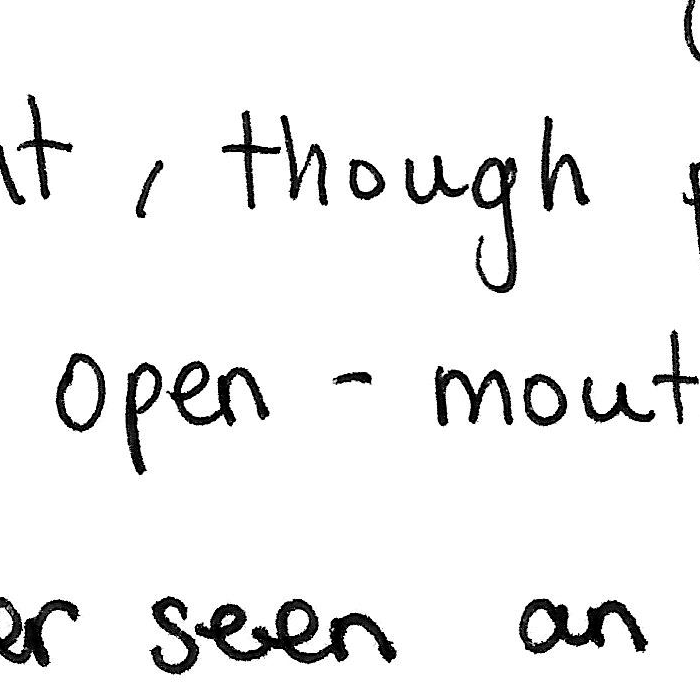 , though
open - mout
er seen an